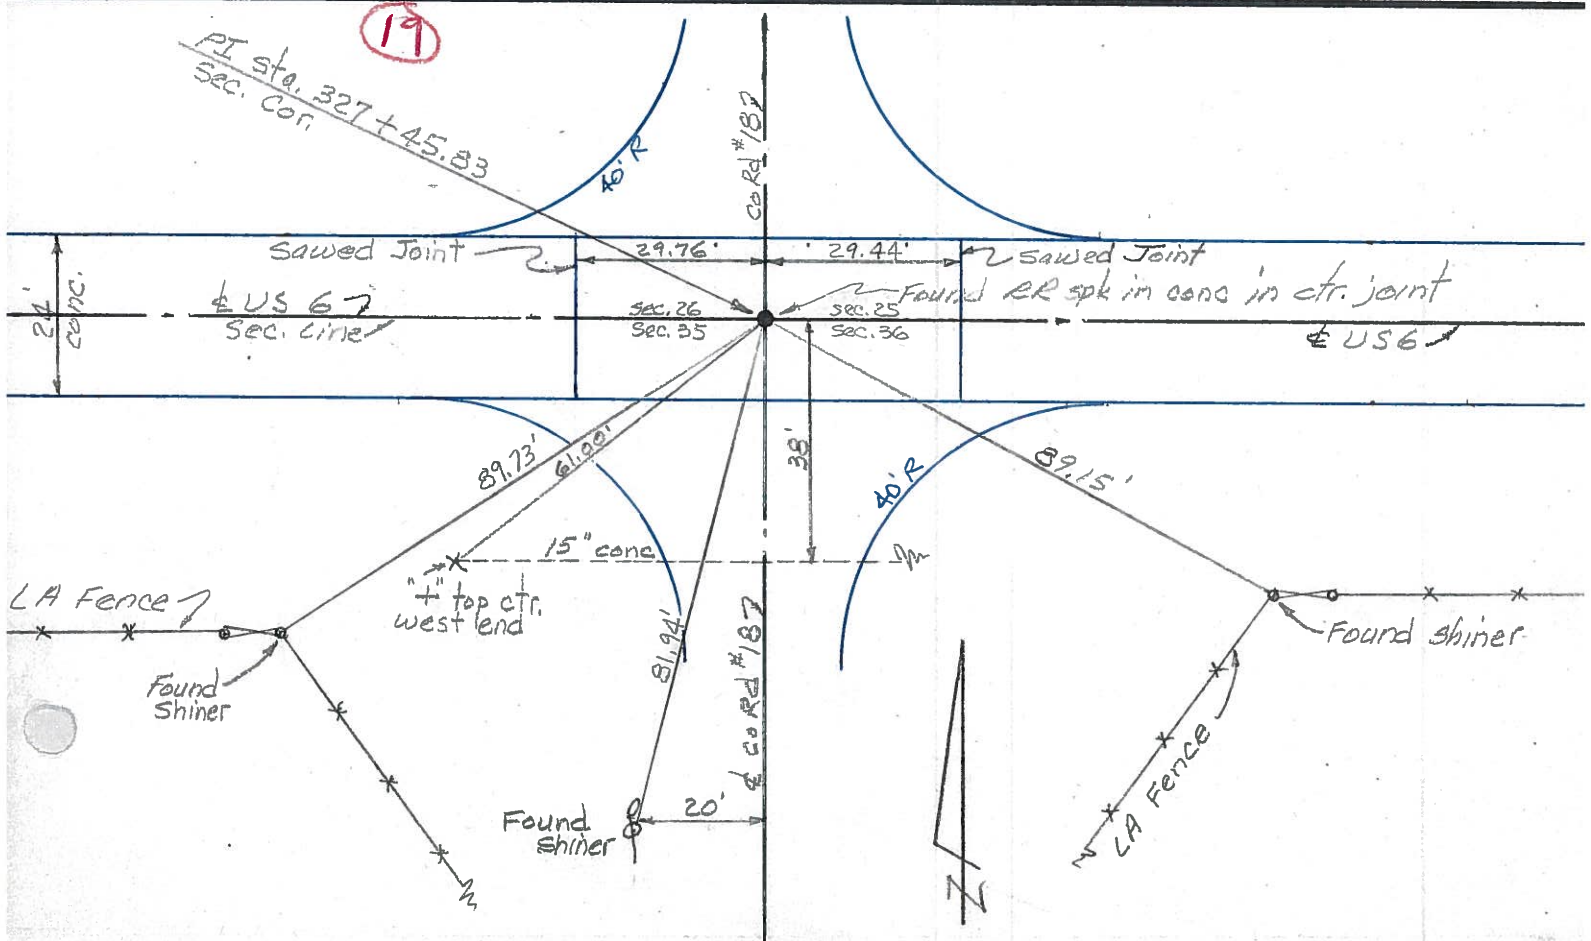 19
PI sta. 327+45.83
Sec. Cor.
Co Rd #187
40' R
Sawed Joint
29.76'
29.44'
Sawed Joint
24' conc.
℄ US 6
Sec. Line
Sec. 26
Sec. 35
Sec. 25
Sec. 36
Found RR spk in conc in ctr. joint
℄ US 6
89.73'
61.00'
38'
40' R
89.15'
15" conc
"+" top ctr.
west end
LA Fence
Found
Shiner
81.94'
℄ Co Rd #187
20'
Found
Shiner
Found Shiner
LA Fence
N